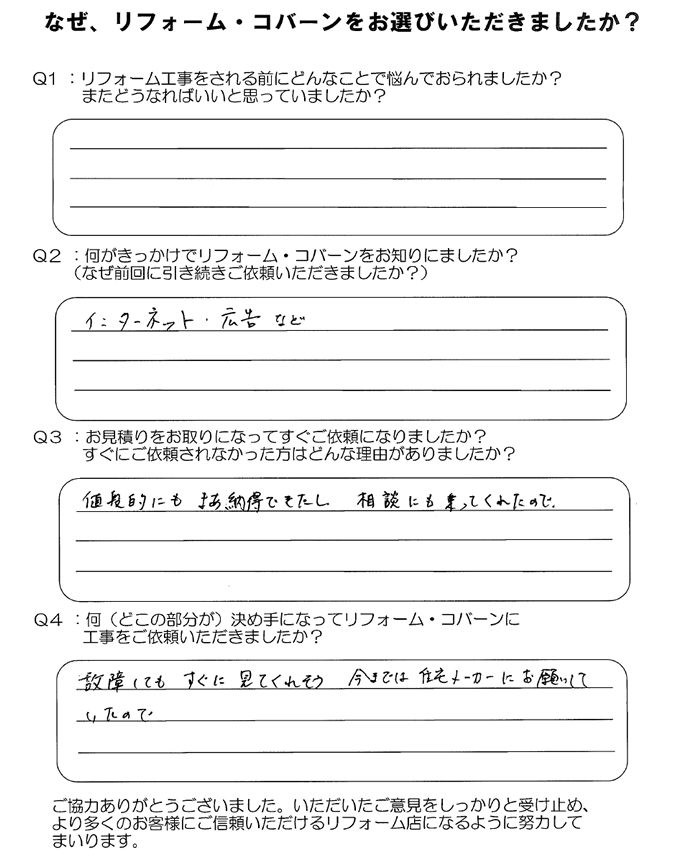 なぜ、リフォーム・コバーンをお選びいただきましたか？
Q1 ：リフォーム工事をされる前にどんなことで悩んでおられましたか？
またどうなればいいと思っていましたか？
Q2 ：何がきっかけでリフォーム・コバーンをお知りにましたか？
（なぜ前回に引き続きご依頼いただきましたか？）
インターネット・広告 など
Q3 ：お見積りをお取りになってすぐご依頼になりましたか？
すぐにご依頼されなかった方はどんな理由がありましたか？
値段的にも まあ納得できたし 相談にも乗ってくれたので.
Q4 ：何（どこの部分が）決め手になってリフォーム・コバーンに
工事をご依頼いただきましたか？
故障しても すぐに 見てくれそう 今までは 住宅メーカーにお願いして
いたので
ご協力ありがとうございました。いただいたご意見をしっかりと受け止め、
より多くのお客様にご信頼いただけるリフォーム店になるように努力して
まいります。